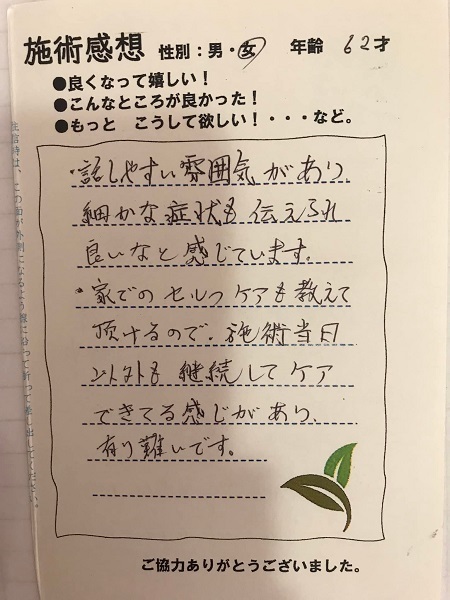 施術感想 性別:男・女 年齢 62才
●良くなって嬉しい!
●こんなところが良かった!
●もっと こうして欲しい!・・・など。
・話しやすい雰囲気があり
細かな症状も伝えられ
良いなと感じています。
・家でのセルフケアも教えて
頂けるので、施術当日
以外も継続してケア
できてる感じがあり、
有り難いです。
ご協力ありがとうございました。
返信時は、この面が外側になるよう